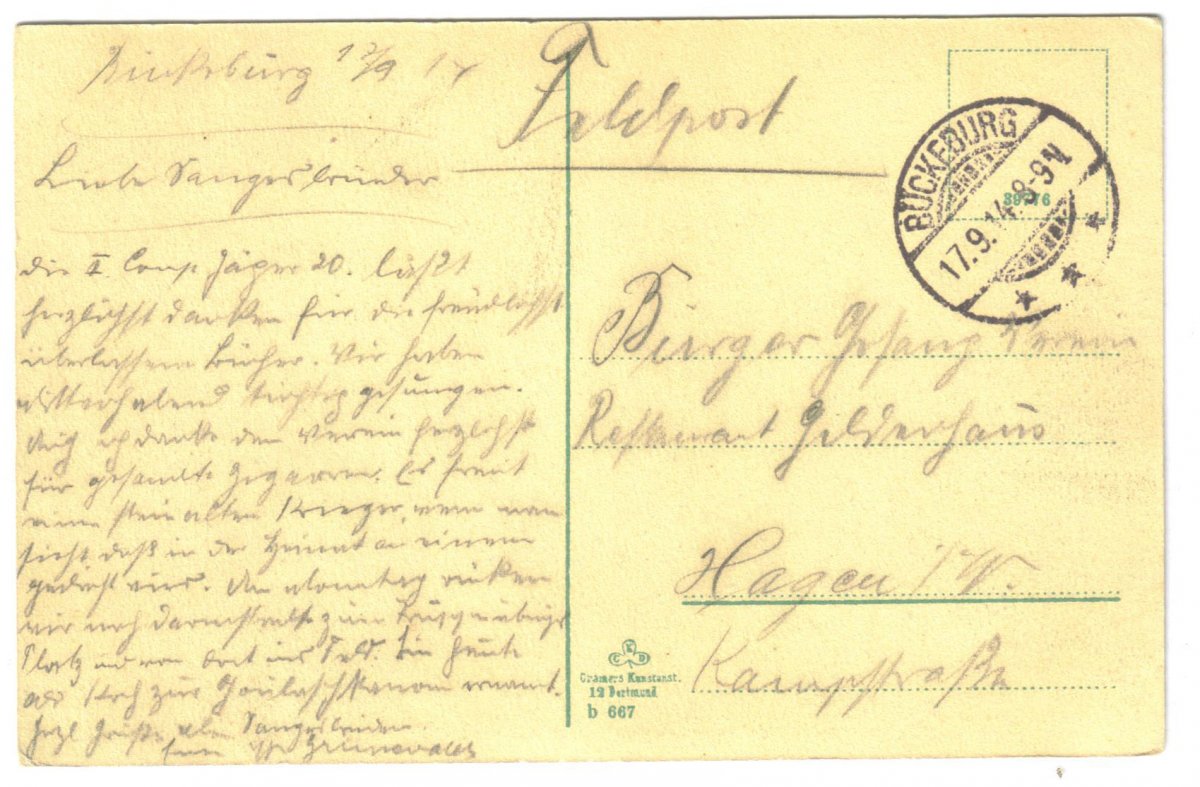 Bückeburg 17/9 14
Feldpost
Liebe Sangesbrüder
BÜCKEBURG
17.9.14. 8-9 N
39776
die II Comp Jäger 20. läßt
herzlichst danken für die freundlichst
überlassenen Bücher. Wir haben
tüchtig gesungen.
Auch ich danke dem Verein herzlichst
für gesandte Zigarren. Es freut
einen alten Krieger, wenn man
sieht daß in der Heimat an einem
gedacht wird. Am Montag rücken
wir nach Darmstadt zum
Platz und von dort ins Feld. Bin heute
als Koch zur ernannt.
Herzl Grüße allen Sangesbrüdern
Euer Grunewald
Bürger Gesang Verein
Restaurant Gelderhaus
Hagen i/W.
Kampstraße
K
C D
Cramers Kunstanst.
12 Dortmund
b 667